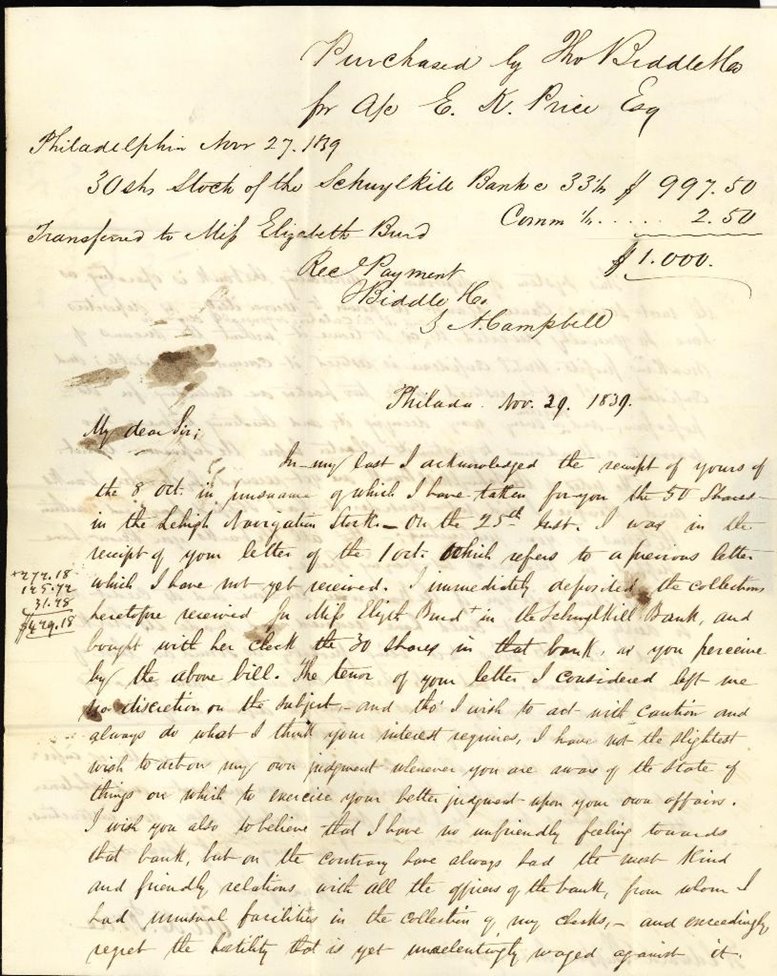 Purchased by Tho Biddle & Co
for a/c E. K. Price Esq
Philadelphia Nov 27. 1839
30 shs Stock of the Schuylkill Bank @ 33¼ $ 997.50
Comm ¼ ..... 2.50
Transferred to Miss Elizabeth Burd
$ 1.000.
Rec Payment
T Biddle & Co.
A. Campbell
Philada. Nov. 29. 1839.
My dear Sir;
In my last I acknowledged the receipt of yours of
the 8 Oct. in pursuance of which I have taken for you the 50 Shares
in the Lehigh Navigation Stock. – On the 25th Inst. I was in the
receipt of your letter of the 1 Oct. which refers to a previous letter
which I have not yet received. I immediately deposited the collections
31.28
$429.18
heretofore received for Miss Elizth Burd in the Schuylkill Bank, and
bought with her check the 30 shares in that bank, as you perceive
by the above bill. The tenor of your letter I considered left me
no discretion on the subject, – and tho' I wish to act with caution and
always do what I think your interest requires, I have not the slightest
wish to act on my own judgment whenever you are aware of the state of
things on which to exercise your better judgment upon your own affairs.
I wish you also to believe that I have no unfriendly feeling towards
that bank, but on the contrary have always had the most kind
and friendly relations with all the officers of the bank, from whom I
had unusual facilities in the collection of my checks, – and exceedingly
regret the hostility that is yet unrelentingly waged against it.